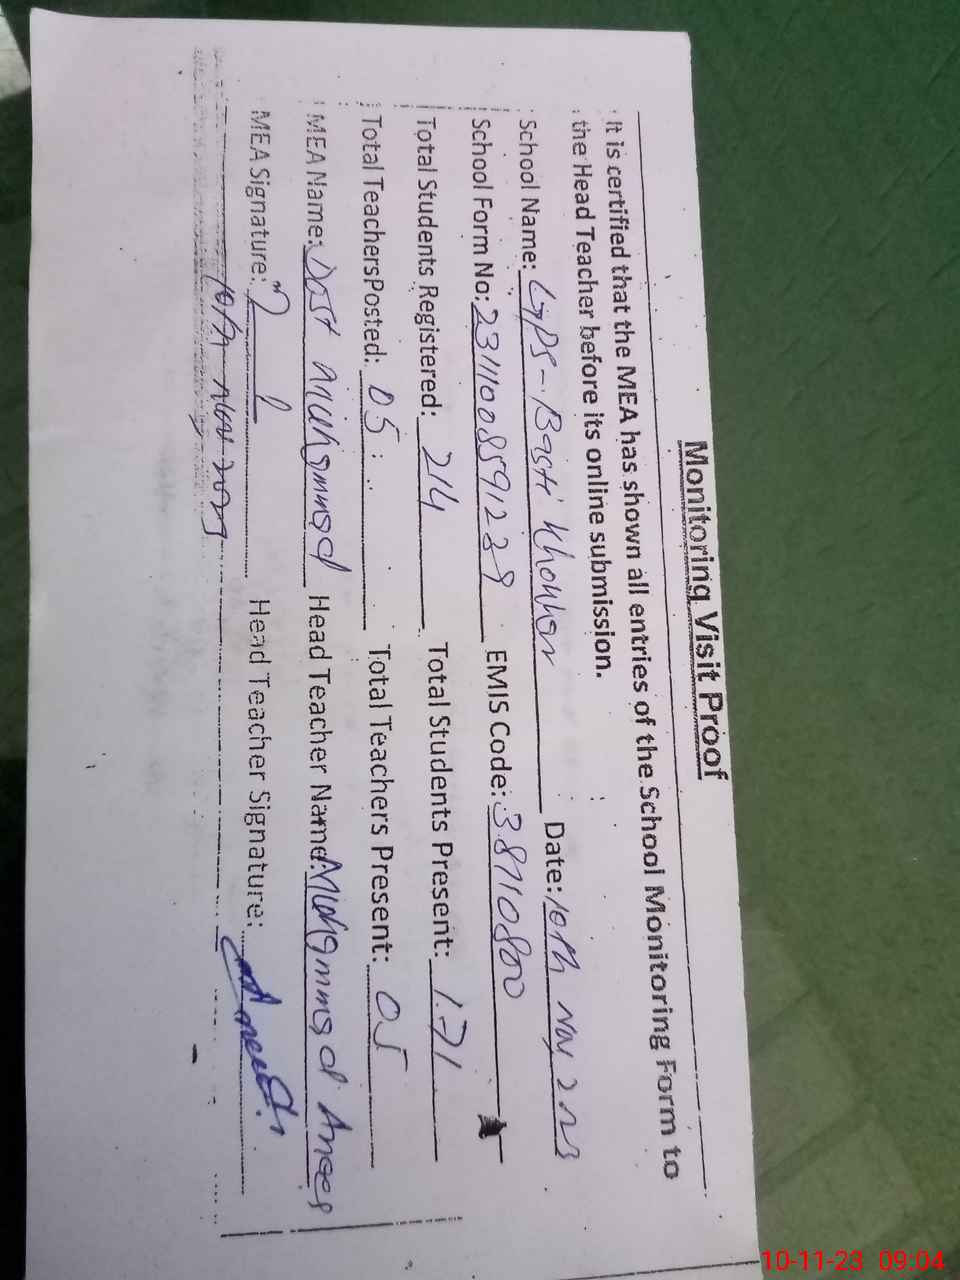 Monitoring Visit Proof
It is certified that the MEA has shown all entries of the School Monitoring Form to
the Head Teacher before its online submission.
School Name: GPS-Basti Khokhar Date: 10th Nov 2023
School Form No: EMIS Code: 38710800
Total Students Registered: 214 Total Students Present: 171
Total TeachersPosted: 05 Total Teachers Present: 05
MEA Name: Dost Muhammad Head Teacher Name: Muhammad Anees
MEA Signature: Head Teacher Signature:
10th Nov 2023
10-11-23 09:04